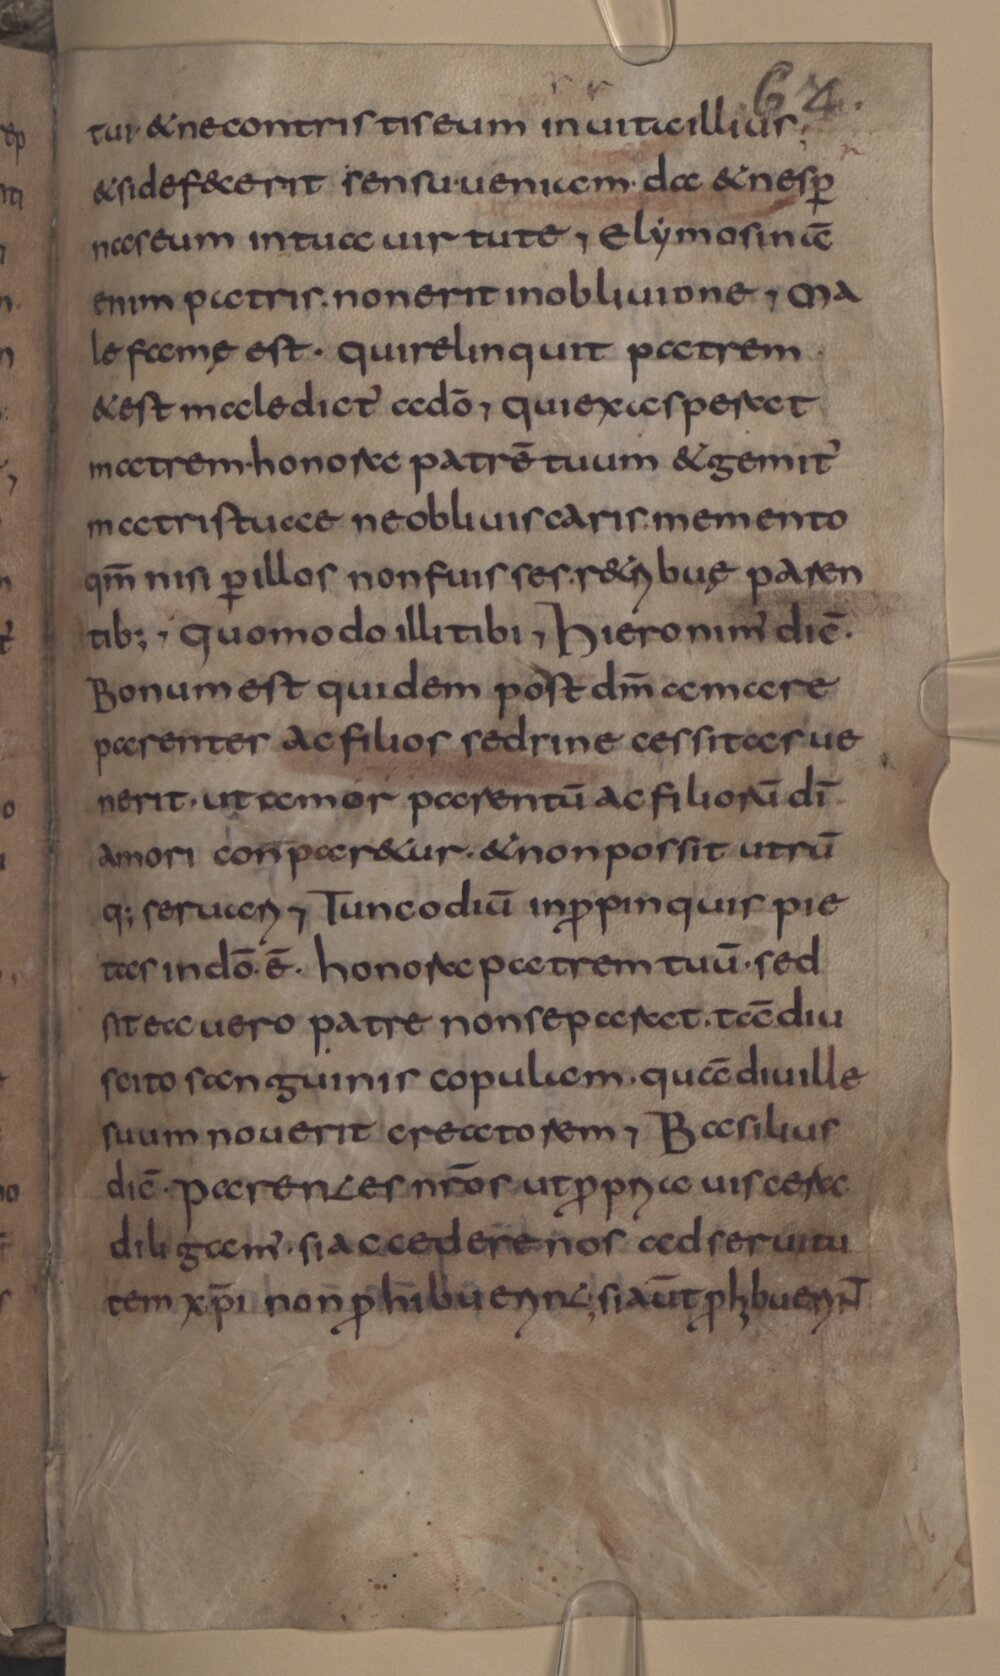 64.
tui· & ne contristis eum in uita illius;
& si defecerit sensu· ueniam· da & ne sp̄
nas eum in tua uirtute, Elẏmosina
enim patris· non erit in obliuione, Ma
le famę est· qui relinquit patrem
& est maledict' a dō, qui exasperat
matrem· honora patrē tuum & gemit'
matris tuae ne obliuiscaris· memento
qm̄ nisi p̄ illos non fuisses· r&ribuę paren
tib; , quomodo illi tibi, Hieronim' dic̄·
Bonum est quidem post dm̄ amare
parentes ac filios sed si necessitas ue
nerit· ut amor parentū ac filiorū dī
amori conpar&ur· & non possit utrū
q; seruari, Tunc odiū in ꝓpinquis pie
tas in dō· ē· honora patrem tuū· sed
si te a uero patre non separat· tādiu
scito sanguinis copulam· quādiu ille
suum nouerit creatorem, Basilius
dic̄· parentes nr̄os ut ꝓpria uiscera
diligam'· si accedere nos ad seruitu
tem xp̄i non ꝓhibuerint; si aūt ꝓhibuerint